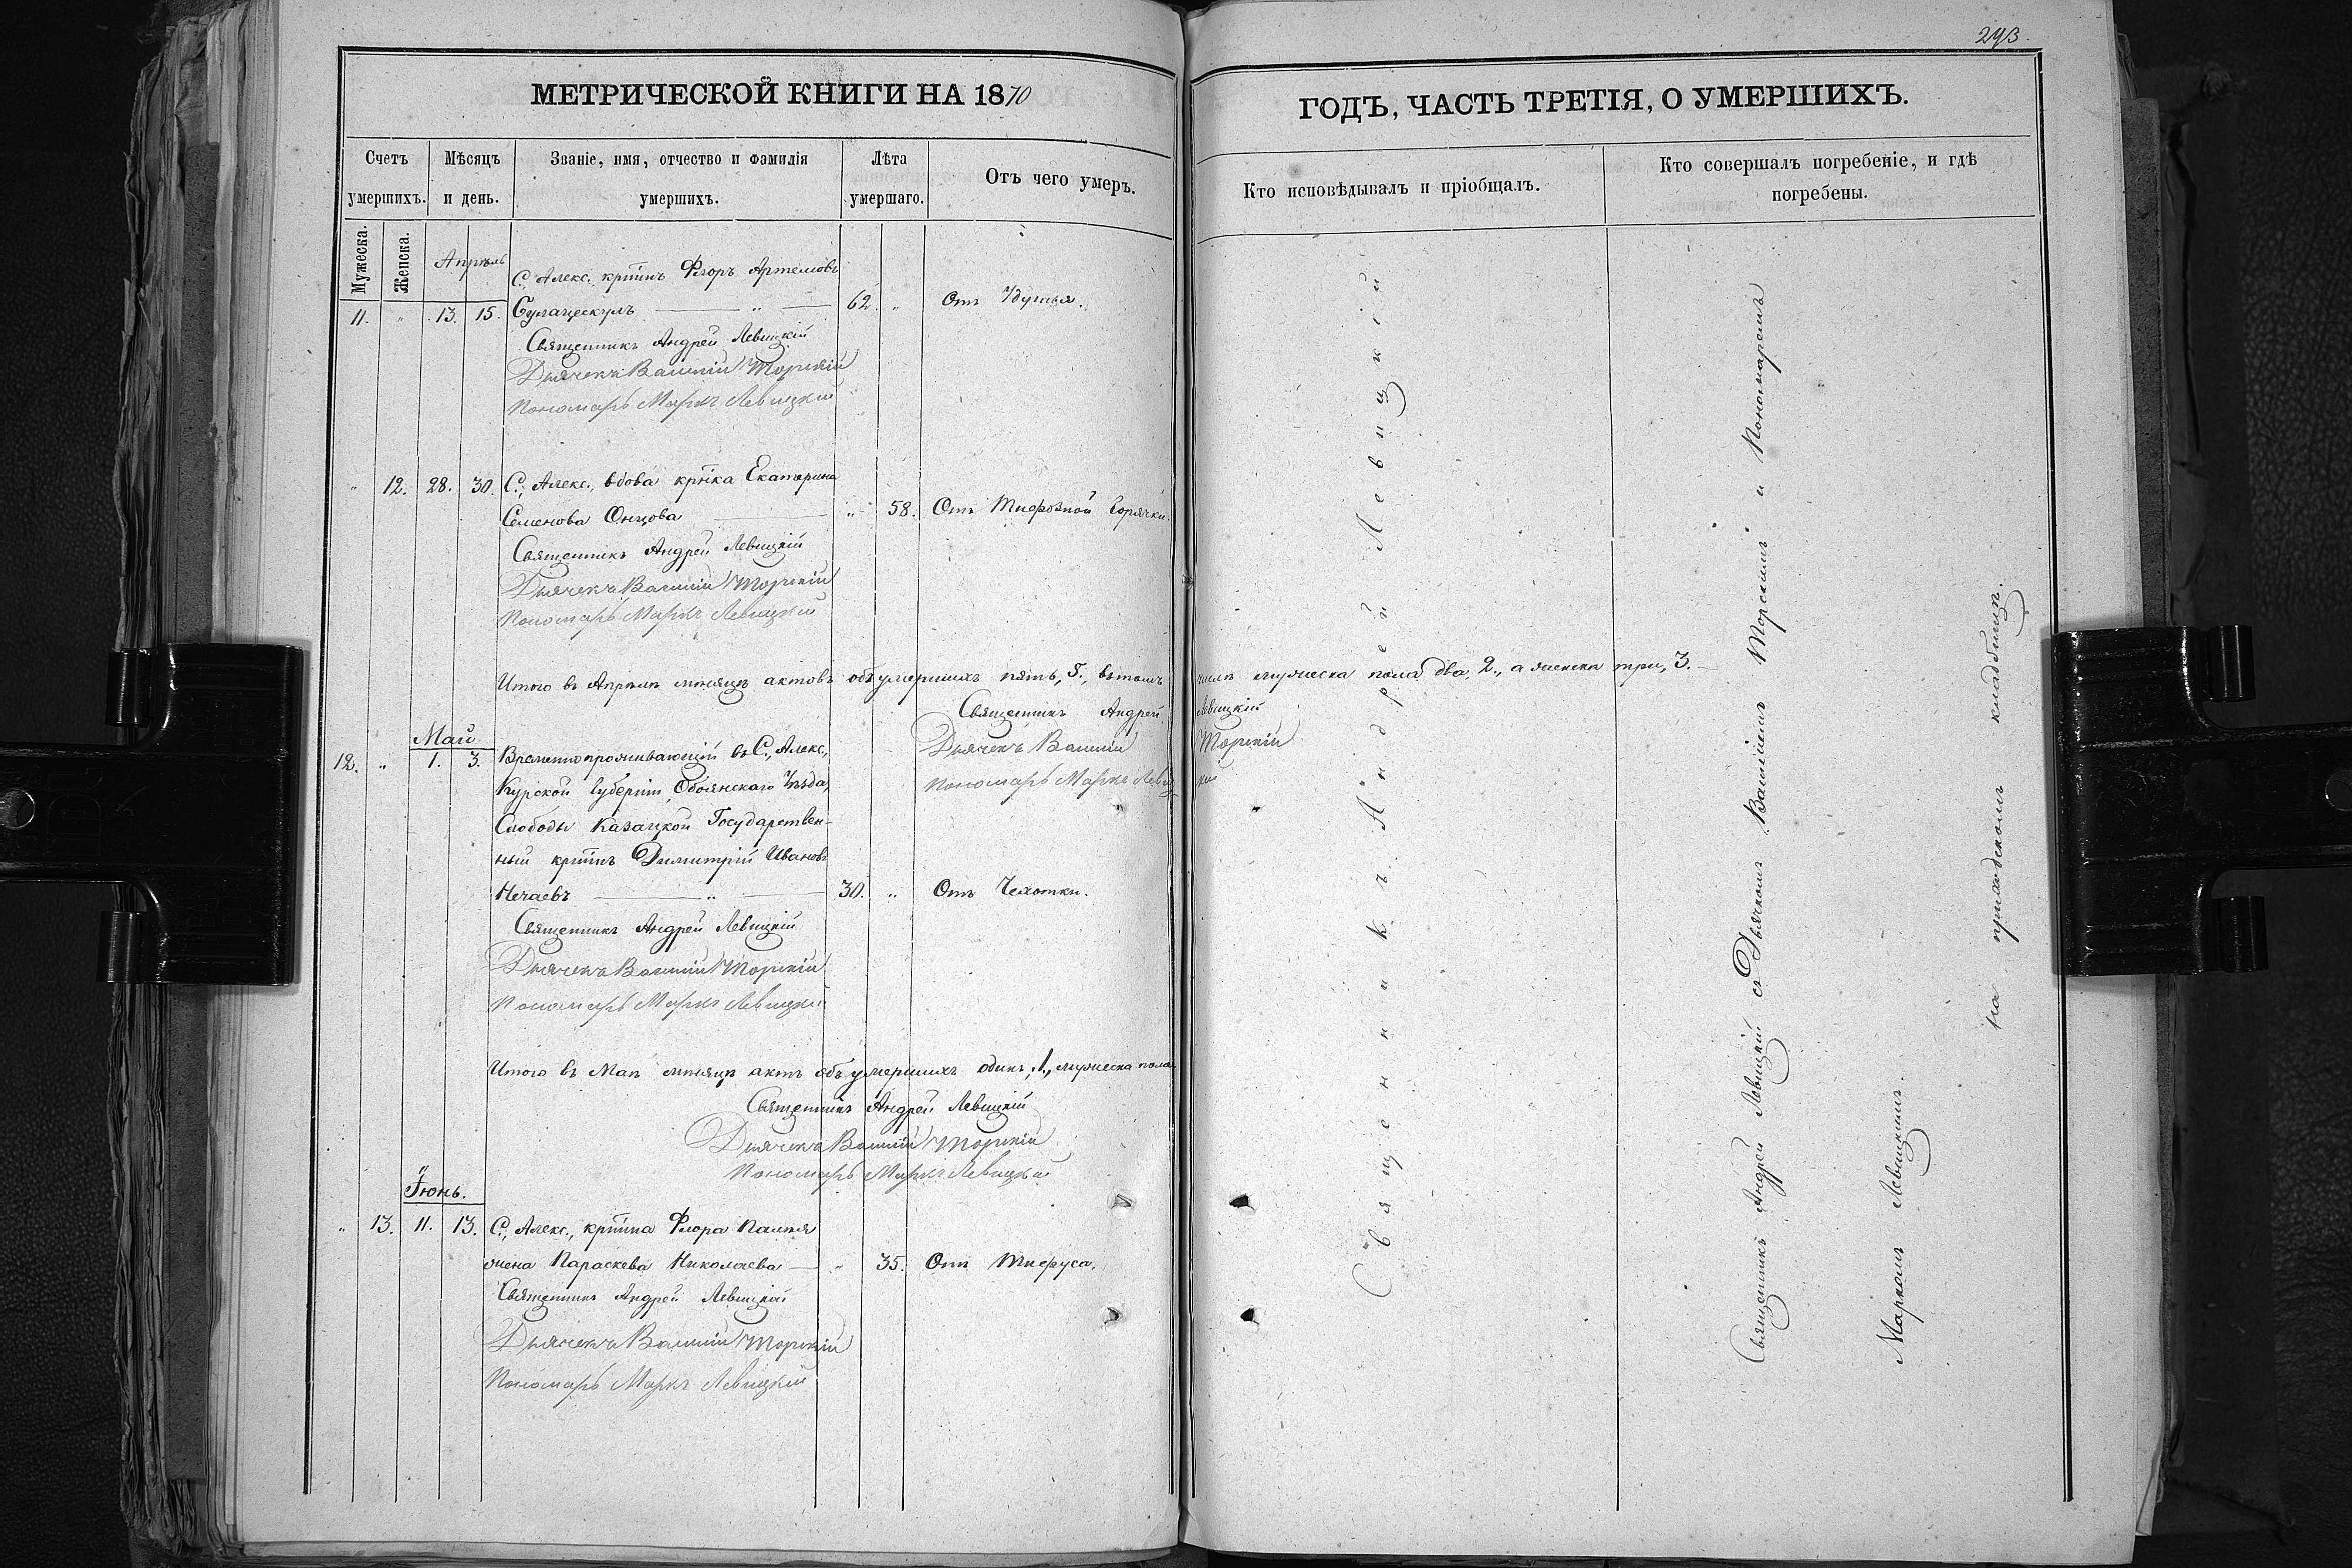 293.
МЕТРИЧЕСКОЙ КНИГИ НА 1870
ГОДЪ, ЧАСТЬ ТРЕТІЯ, О УМЕРШИХЪ.
Счетъ умершихъ.
Мѣсяцъ и день.
Званіе, имя, отчество и фамилія умершихъ.
Лѣта умершаго.
Отъ чего умеръ.
Кто исповѣдывалъ и пріобщалъ.
Кто совершалъ погребеніе, и гдѣ погребены.
Мужеска.
Женска.
Апрѣль
С., Алекс., крт҃инъ Флоръ Артемовъ
11. " 13. 15. 62. " Отъ Удушья.
Священникъ Андрей Левицкій
Дьячекъ Василій Торскій
Пономарь Маркъ Левицкій
" 12. 28. 30. С., Алекс., вдова крт҃ка Екатерина
Семенова Онцова " 58. Отъ Тифозной Горячки.
Священникъ Андрей Левицкій
Дьячекъ Василій Торскій
Пономарь Маркъ Левицкій
Итого въ Апрѣлѣ мѣсяцѣ актовъ объ умершихъ пять, 5., въ томъ числѣ мужеска пола два, 2., а женска три, 3.
Священникъ Андрей Левицкій
Дьячекъ Василій Торскій
Пономарь Маркъ Левицкій
Май
12. " 1. 3. Временнопроживающій въ С., Алекс.,
Курской Губерніи, Обоянскаго Уѣзда,
Слободы Казацкой Государствен-
ный крт҃инъ Димитрій Ивановъ
Нечаевъ " 30. " Отъ Чахотки.
Священникъ Андрей Левицкій
Дьячекъ Василій Торскій
Пономарь Маркъ Левицкій
Итого въ Маѣ мѣсяцѣ актъ объ умершихъ одинъ, 1., мужеска пола
Священникъ Андрей Левицкій
Дьячекъ Василій Торскій
Пономарь Маркъ Левицкій
Іюнь.
" 13. 11. 13. С., Алекс., крт҃ина Флора
жена Параскева Николаева " 35. Отъ Тифуса.
Священникъ Андрей Левицкій
Дьячекъ Василій Торскій
Пономарь Маркъ Левицкій
Священникъ Андрей Левицкій
Священникъ Андрей Левицкій съ Дьячкомъ Василіемъ Торскимъ и Пономаремъ
Маркомъ Левицкимъ.
на приходскомъ кладбищѣ.